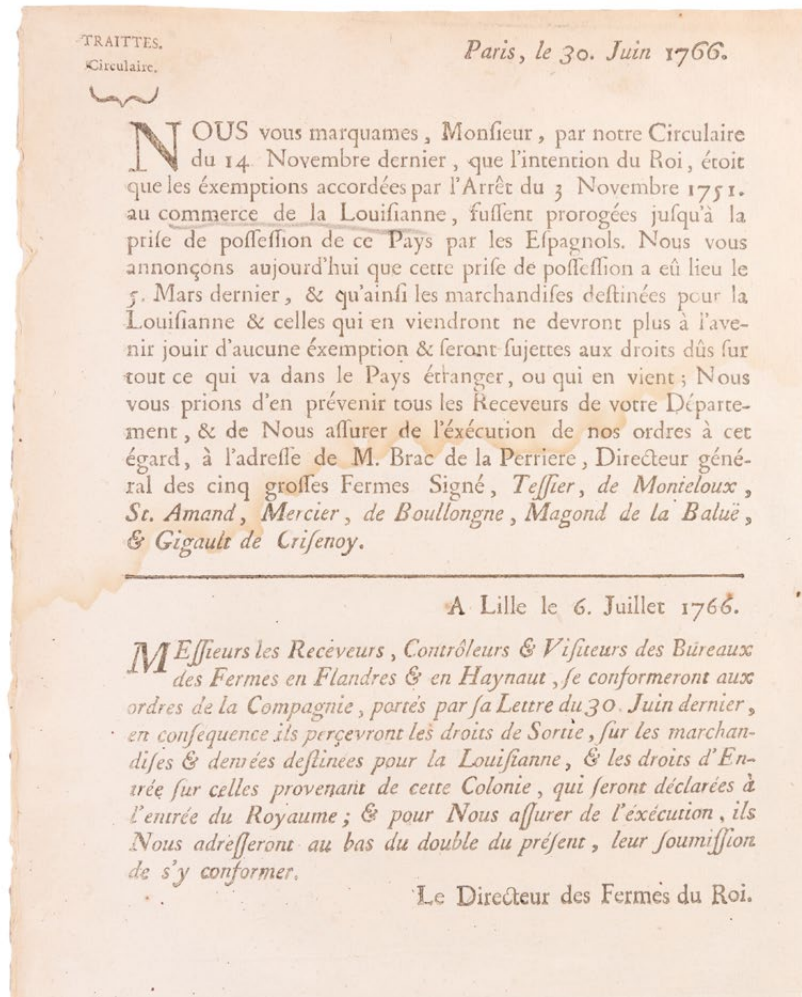 TRAITTES.
Circulaire.
Paris, le 30. Juin 1766.
NOUS vous marquames, Monſieur, par notre Circulaire
du 14 Novembre dernier, que l'intention du Roi, étoit
que les éxemptions accordées par l'Arrêt du 3 Novembre 1751.
au commerce de la Louiſianne, fuſſent prorogées juſqu'à la
priſe de poſſeſſion de ce Pays par les Eſpagnols. Nous vous
annonçons aujourd'hui que cette priſe de poſſeſſion a eû lieu le
5. Mars dernier, & qu'ainſi les marchandiſes deſtinées pour la
Louiſianne & celles qui en viendront ne devront plus à l'ave-
nir jouir d'aucune éxemption & ſeront ſujettes aux droits dûs ſur
tout ce qui va dans le Pays étranger, ou qui en vient; Nous
vous prions d'en prévenir tous les Receveurs de votre Départe-
ment, & de Nous aſſurer de l'éxécution de nos ordres à cet
égard, à l'adreſſe de M. Brac de la Perriere, Directeur géné-
ral des cinq groſſes Fermes Signé, Teſſier, de Monteloux,
St. Amand, Mercier, de Boullongne, Magond de la Baluë,
& Gigault de Criſenoy.
A Lille le 6. Juillet 1766.
MEſſieurs les Receveurs, Contrôleurs & Viſiteurs des Bureaux
des Fermes en Flandres & en Haynaut, ſe conformeront aux
ordres de la Compagnie, portés par ſa Lettre du 30. Juin dernier,
en conſequence ils perçevront les droits de Sortie, ſur les marchan-
diſes & denrées deſtinées pour la Louiſianne, & les droits d'En-
trée ſur celles provenant de cette Colonie, qui ſeront déclarées à
l'entrée du Royaume; & pour Nous aſſurer de l'éxécution, ils
Nous adreſſeront au bas du double du préſent, leur ſoumiſſion
de s'y conformer.
Le Directeur des Fermes du Roi.